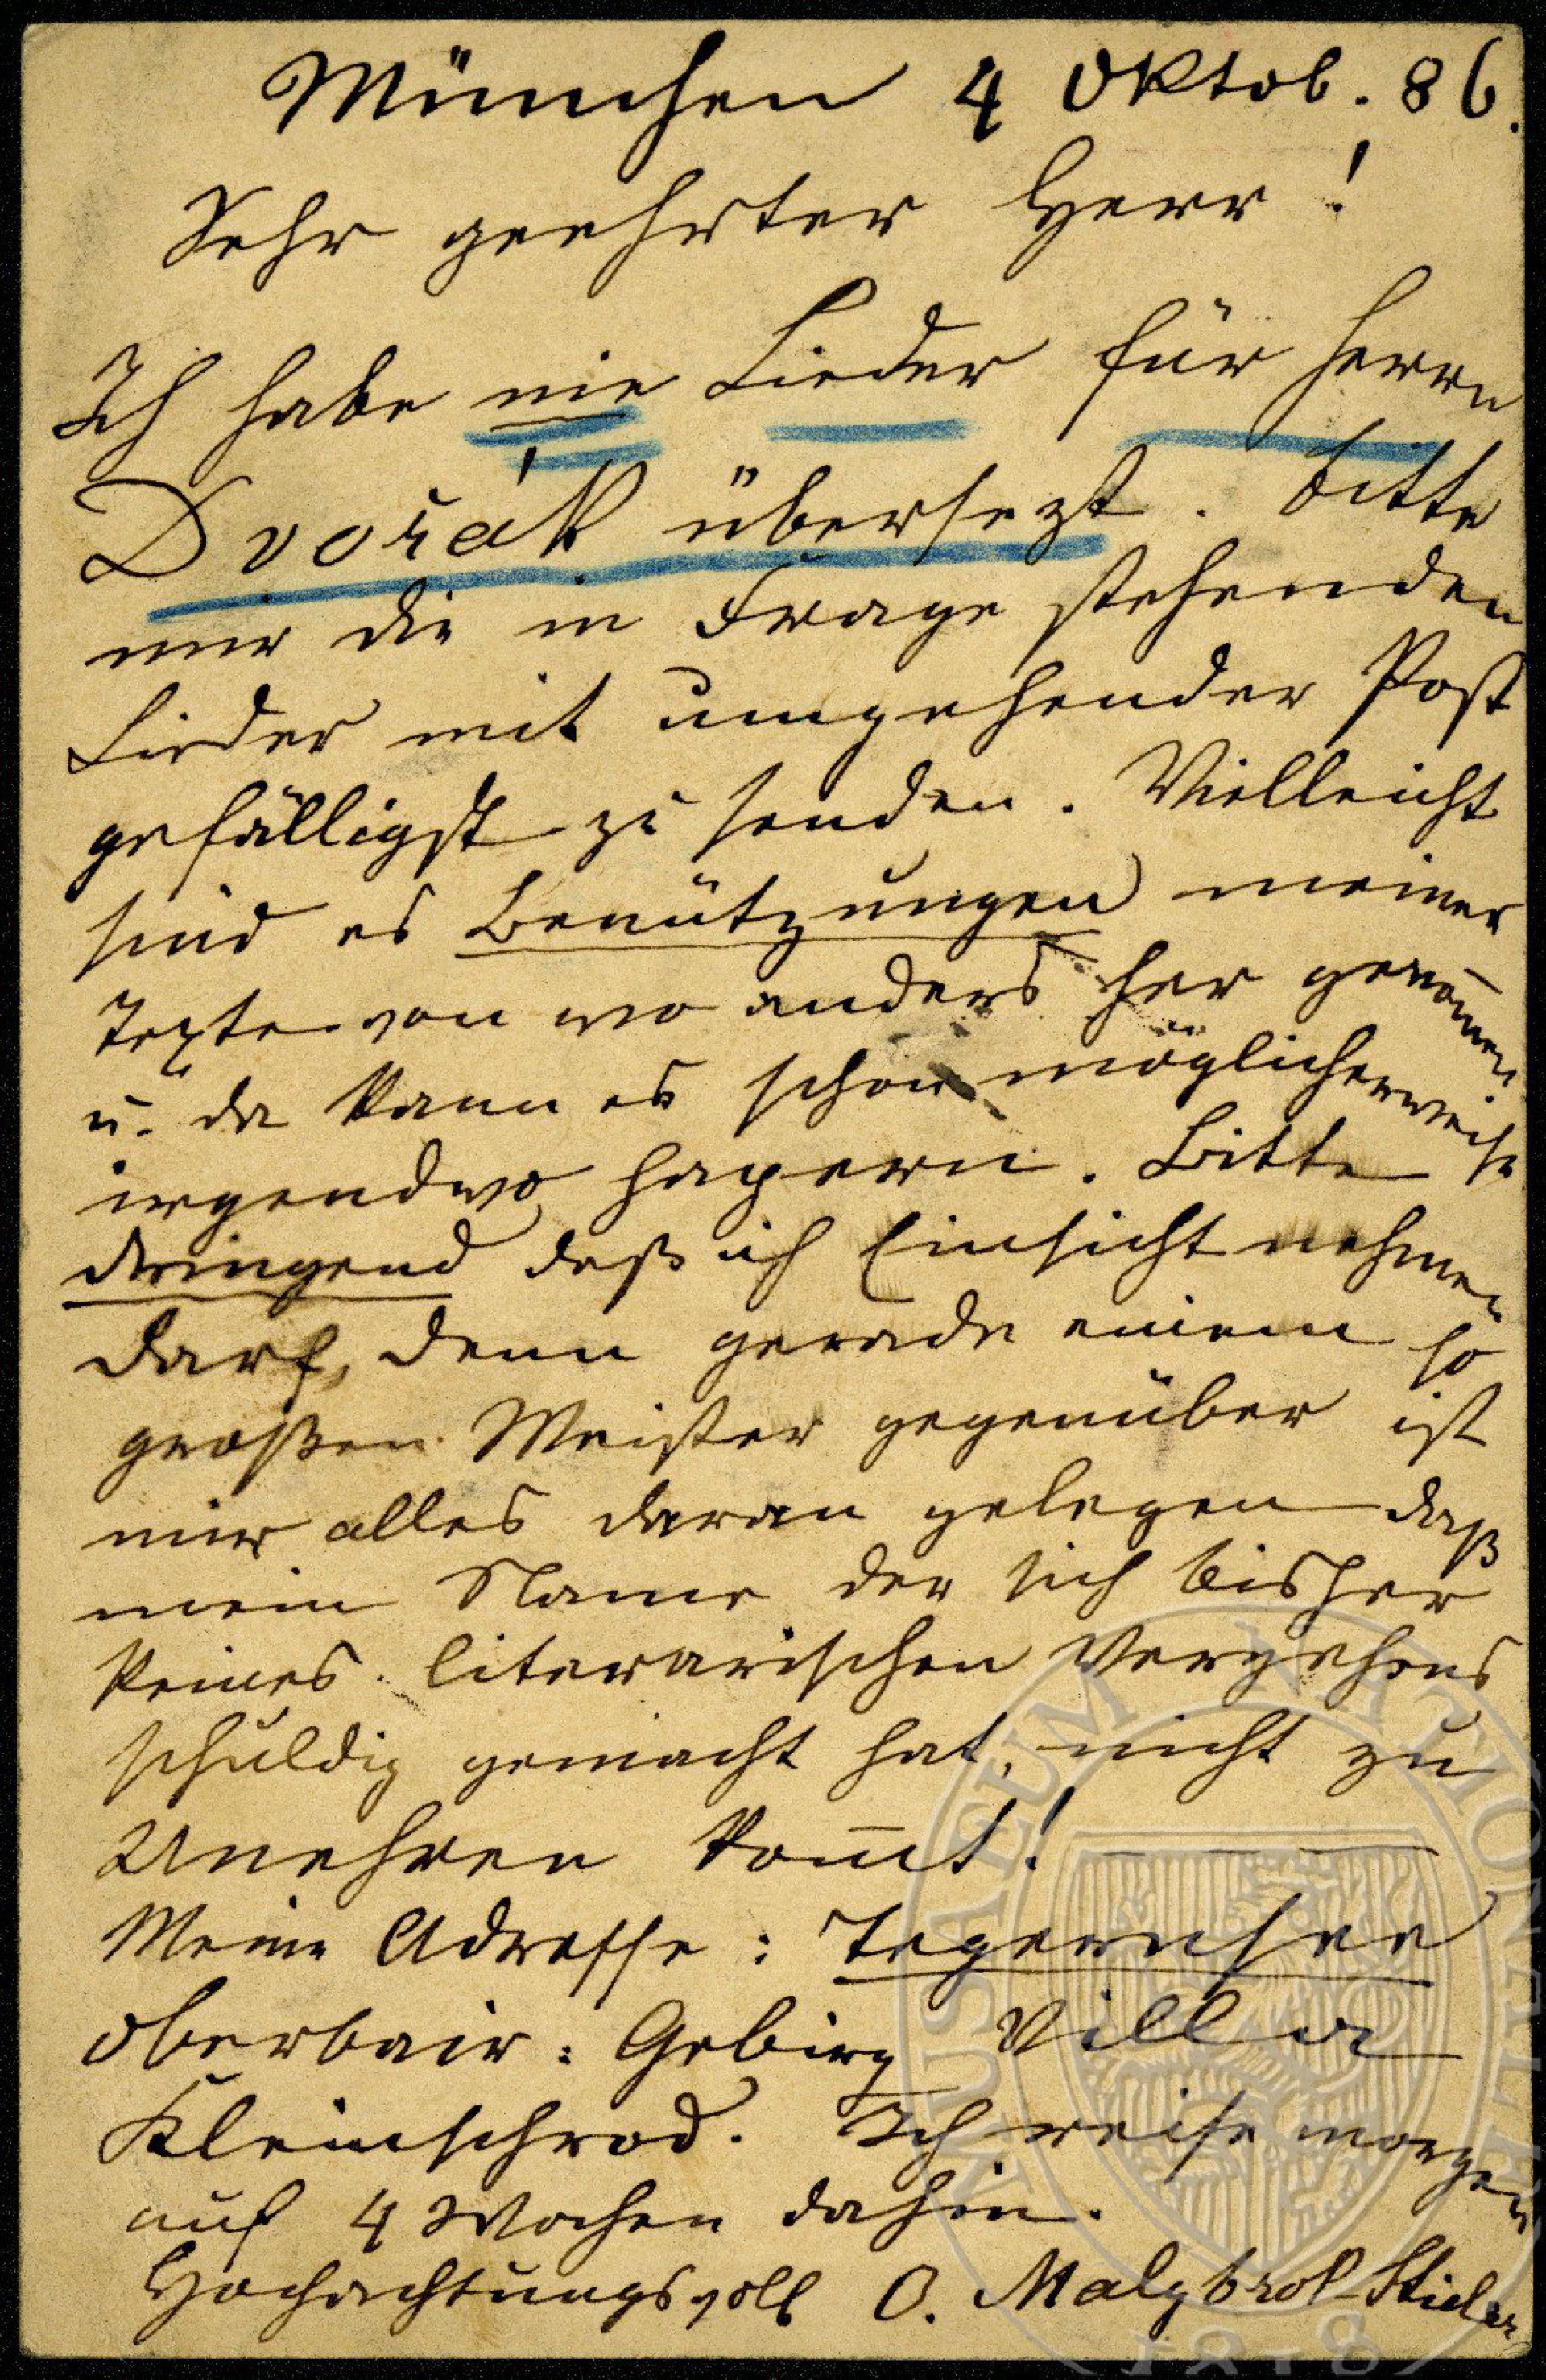 München 4 Oktob. 86.
Sehr geehrter Herr!
Ich habe nie Lieder für Herrn
Dvořák übersezt. Bitte
mir die in Frage stehenden
Lieder mit umgehender Post
gefälligst zu senden. Vielleicht
sind es Benützungen meiner
Texte von wo anders her genom̅en
u. da kann es schon möglicherweise
irgendwo hapern. Bitte
dringend daß ich Einsicht nehmen
darf, denn gerade einem so
großen Meister gegenüber ist
mir alles daran gelegen daß
mein Name der sich bisher
keines literarischen Vergehens
schuldig gemacht hat, nicht zu
Unehren kom̅t!
Meine Adresse: Tegernsee
oberbair: Gebirg Villa
Kleinschrod. Ich reise morgen
auf 4 Wochen dahin.
Hochachtungsvoll O. Malybrok-Stieler
MUSAEUM NATIONALE
1818